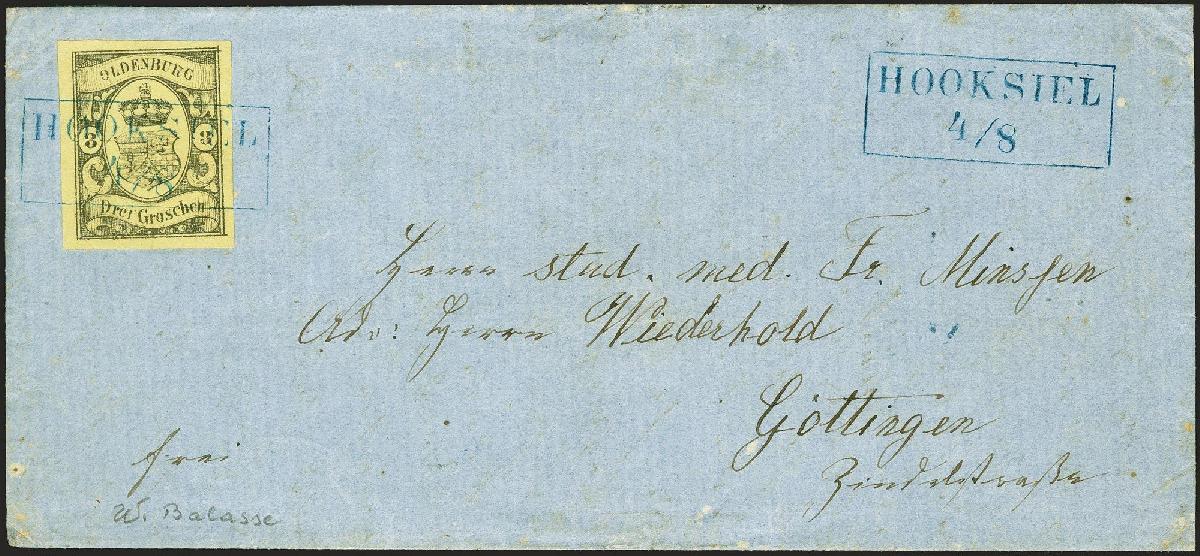 OLDENBURG
3 3
Drei Groschen
HOOKSIEL
4/8
HOOKSIEL
4/8
Herrn stud. med. Fr. Minssen
Adr: Herrn Wiederhold
Göttingen
Zindelstraße
frei
W. Balasse